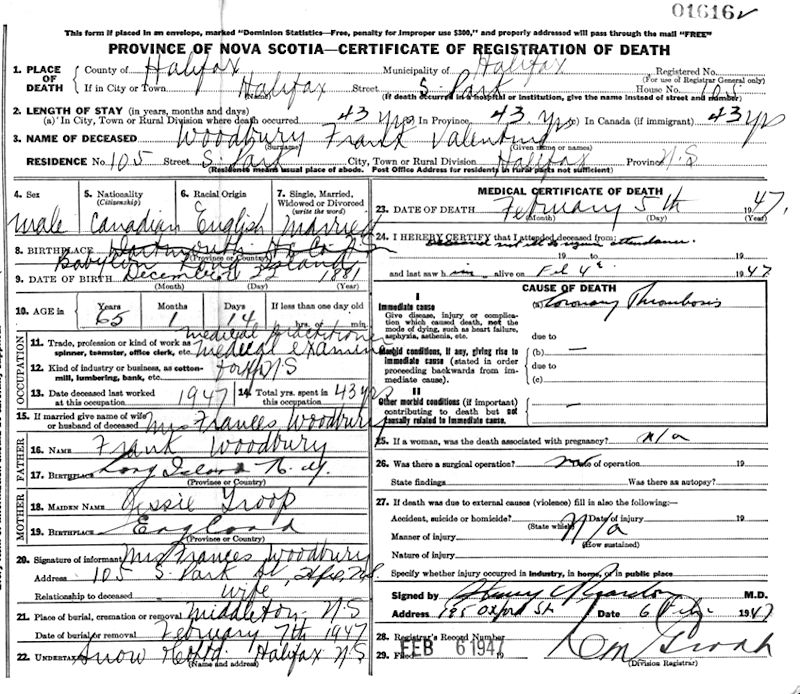 01616
This form if placed in an envelope, marked "Dominion Statistics—Free, penalty for improper use $300," and properly addressed will pass through the mail "FREE"
PROVINCE OF NOVA SCOTIA—CERTIFICATE OF REGISTRATION OF DEATH
1. PLACE OF DEATH County of Halifax Municipality of Halifax Registered No. (For use of Registrar General only)
If in City or Town Halifax (Name) Street S. Park House No. 105
(If death occurred in a hospital or institution, give the name instead of street and number)
2. LENGTH OF STAY (in years, months and days)
(a) In City, Town or Rural Division where death occurred 43 yrs (b) In Province 43 yrs (c) In Canada (if immigrant) 43 yrs
3. NAME OF DECEASED Woodbury Frank Valentine
(Surname) (Given name or names)
RESIDENCE No. 105 Street S. Park City, Town or Rural Division Halifax Province N.S
(Residence means usual place of abode. Post Office Address for residents in rural parts not sufficient)
4. Sex 5. Nationality (Citizenship) 6. Racial Origin 7. Single, Married, Widowed or Divorced (write the word)
male Canadian English Married
8. BIRTHPLACE Dartmouth Hfx Co N.S
(Province or Country)
Babylon Long Island
9. DATE OF BIRTH December 22 1881
(Month) (Day) (Year)
10. AGE in Years Months Days If less than one day old
65 1 14 hrs. or min.
OCCUPATION
11. Trade, profession or kind of work as spinner, teamster, office clerk, etc. medical practitioner
medical examiner
12. Kind of industry or business, as cotton-mill, lumbering, bank, etc. for N.S
13. Date deceased last worked at this occupation 1947 14. Total yrs. spent in this occupation 43 yrs
15. If married give name of wife or husband of deceased Mrs Frances Woodbury
FATHER
16. Name Frank Woodbury
17. Birthplace Long Island N.Y.
(Province or Country)
MOTHER
18. Maiden Name Jessie Troop
19. Birthplace England
(Province or Country)
20. Signature of informant Mrs Frances Woodbury
Address 105 S. Park St, Hfx, N.S.
Relationship to deceased wife
21. Place of burial, cremation or removal Middleton N.S
Date of burial or removal February 7th 1947
22. UNDERTAKER Snow & Co Ltd Halifax N.S
(Name and address)
MEDICAL CERTIFICATE OF DEATH
23. DATE OF DEATH February 5th 1947
(Month) (Day) (Year)
24. I HEREBY CERTIFY that I attended deceased from:
19 to 19
and last saw him alive on Feb 4 1947
CAUSE OF DEATH
I
Immediate cause (a) Coronary Thrombosis
Give disease, injury or complication which caused death, not the mode of dying, such as heart failure, asphyxia, asthenia, etc.
due to
Morbid conditions, if any, giving rise to immediate cause (stated in order proceeding backwards from immediate cause). (b) —
due to
(c)
II
Other morbid conditions (if important) contributing to death but not causally related to immediate cause. —
25. If a woman, was the death associated with pregnancy? n/a
26. Was there a surgical operation? no Date of operation 19
State findings Was there an autopsy?
27. If death was due to external causes (violence) fill in also the following:—
Accident, suicide or homicide? (State which) Date of injury 19
Manner of injury N/a (How sustained)
Nature of injury
Specify whether injury occurred in industry, in home, or in public place
Signed by M.D.
Address 185 Oxford St Date 6 Feb. 1947
28. Registrar's Record Number
29. Filed FEB 6 1947 19
(Division Registrar)